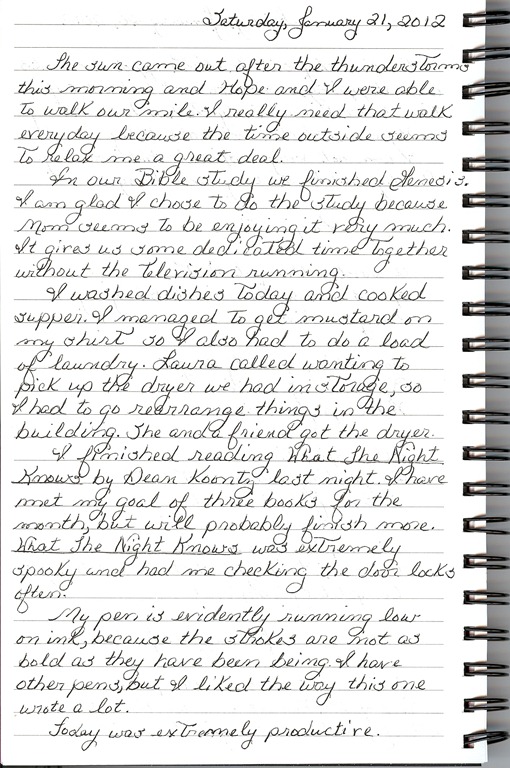 Saturday, January 21, 2012
The sun came out after the thunderstorms
this morning and Hope and I were able
to walk our mile. I really need that walk
everyday because the time outside seems
to relax me a great deal.
In our Bible study we finished Genesis.
I am glad I chose to do the study because
Mom seems to be enjoying it very much.
It gives us some dedicated time together
without the television running.
I washed dishes today and cooked
supper. I managed to get mustard on
my shirt so I also had to do a load
of laundry. Laura called wanting to
pick up the dryer we had in storage, so
I had to go rearrange things in the
building. She and a friend got the dryer.
I finished reading What The Night
Knows by Dean Koontz last night. I have
met my goal of three books for the
month, but will probably finish more.
What The Night Knows was extremely
spooky and had me checking the door locks
often.
My pen is evidently running low
on ink, because the strokes are not as
bold as they have been being. I have
other pens, but I liked the way this one
wrote a lot.
Today was extremely productive.